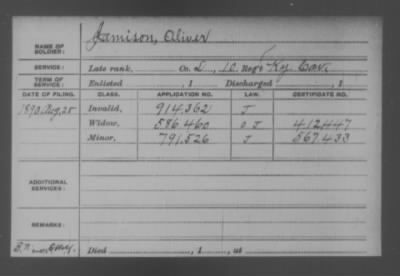 NAME OF SOLDIER: Jamison, Oliver
SERVICE: Late rank, Co. L, 10 Reg't Ky. Cav.
TERM OF SERVICE: Enlisted , 1 Discharged , 1
DATE OF FILING. CLASS. APPLICATION NO. LAW. CERTIFICATE NO.
1890 Aug. 25 Invalid, 914.362 J
Widow, 586.460 J 412447
Minor, 791.526 J 567.433
ADDITIONAL SERVICES:
REMARKS:
Died , 1 , at